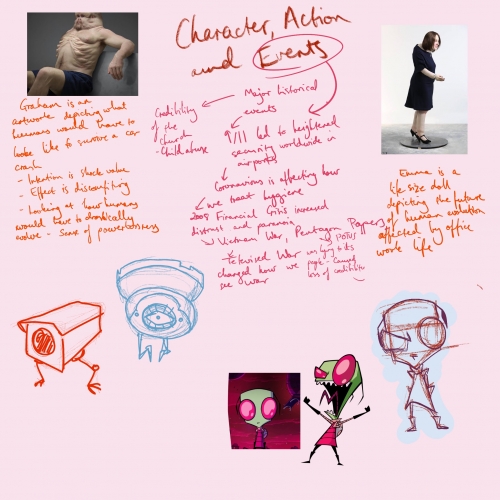 Character, Action
and Events
Major historical
events
Credibility
of the
church
- Child abuse
9/11 led to heightened
security worldwide in
airports
Coronavirus is affecting how
we treat hygiene
2008 Financial Crisis increased
distrust and paranoia
Vietnam War, Pentagon Papers
Televised War
changed how we
see war
POTUS
was lying to its
people - Caused
loss of credibility
Graham is an
artwork depicting what
humans would have to
look like to survive a car
crash
- Intention is shock value
- Effect is discomforting
- Looking at how humans
would have to drastically
evolve - Sense of powerlessness
Emma is a
life size doll
depicting the future
of human evolution
affected by office
work life